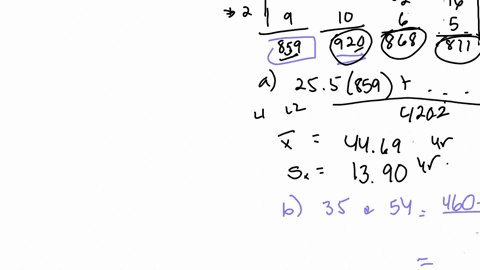 → 2 9 10 6 5
859 920 868 811
a) 25.5(859) + ...
4202
x̄ = 44.69 yr
Sx = 13.90 yr.
b) 35 & 54 = 460-
=